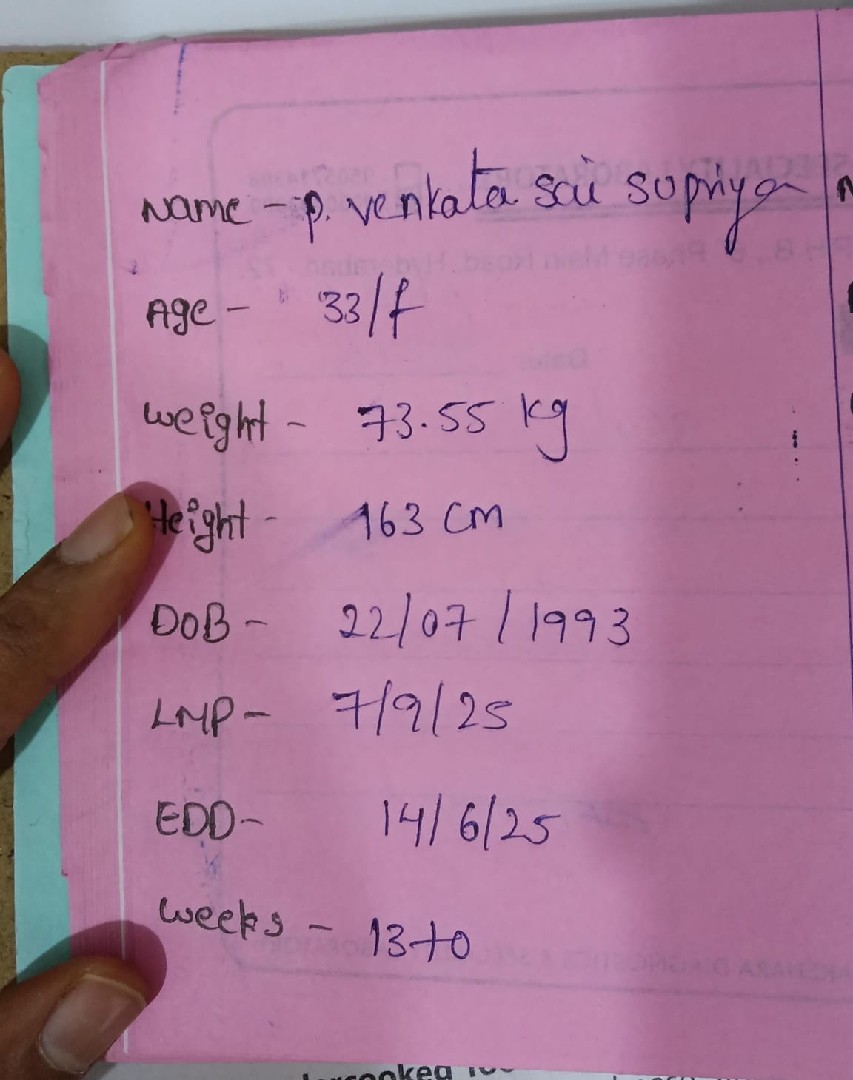 Name - P. Venkata Sai Supriya
Age - 33/f
Weight - 73.55 kg
Height - 163 cm
DOB - 22/07/1993
LMP - 7/9/25
EDD - 14/6/25
Weeks - 13+0